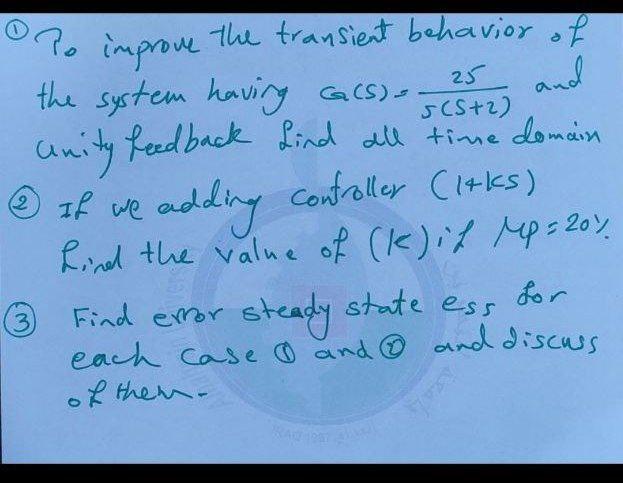 ① To improve the transient behavior of
the system having G(S) = 25 / S(S+2) and
unity feedback find all time domain
② If we adding controller (1+KS)
find the value of (K) if Mp = 20%
③ Find error steady state ess for
each case ① and ② and discuss
of them.